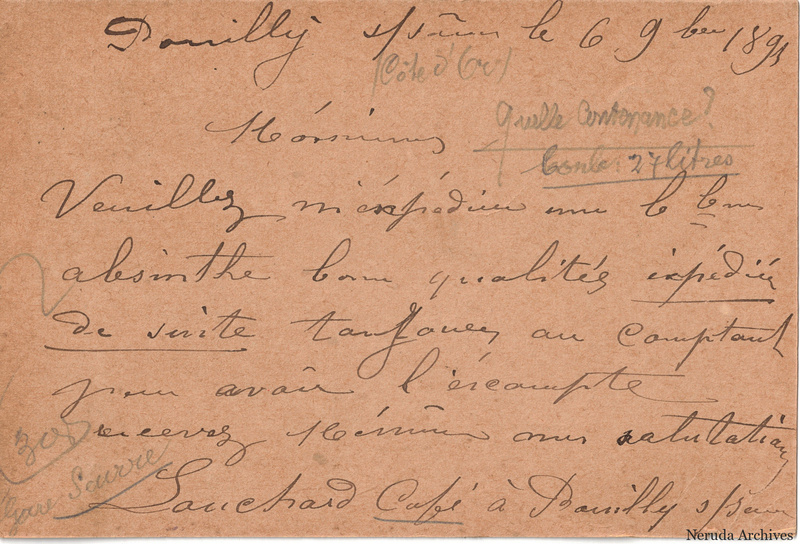 Pouilly s/Saône le 6 9bre 189
(Côte d'Or)
Quelle Contenance?
27 litres
Messieurs
Veuillez m'expédier une b bne
absinthe bonne qualités expédiée
de suite toujours au comptant
pour avoir l'éscompte
recevez Messieurs mes salutations
30
Gare Seurre
Louchard Café à Pouilly s/Saône
Neruda Archives